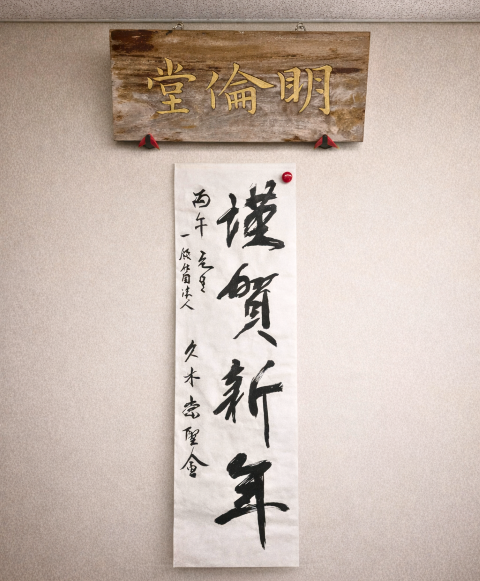 明倫堂
謹賀新年
丙午 元旦
一般社団法人
久米崇聖會